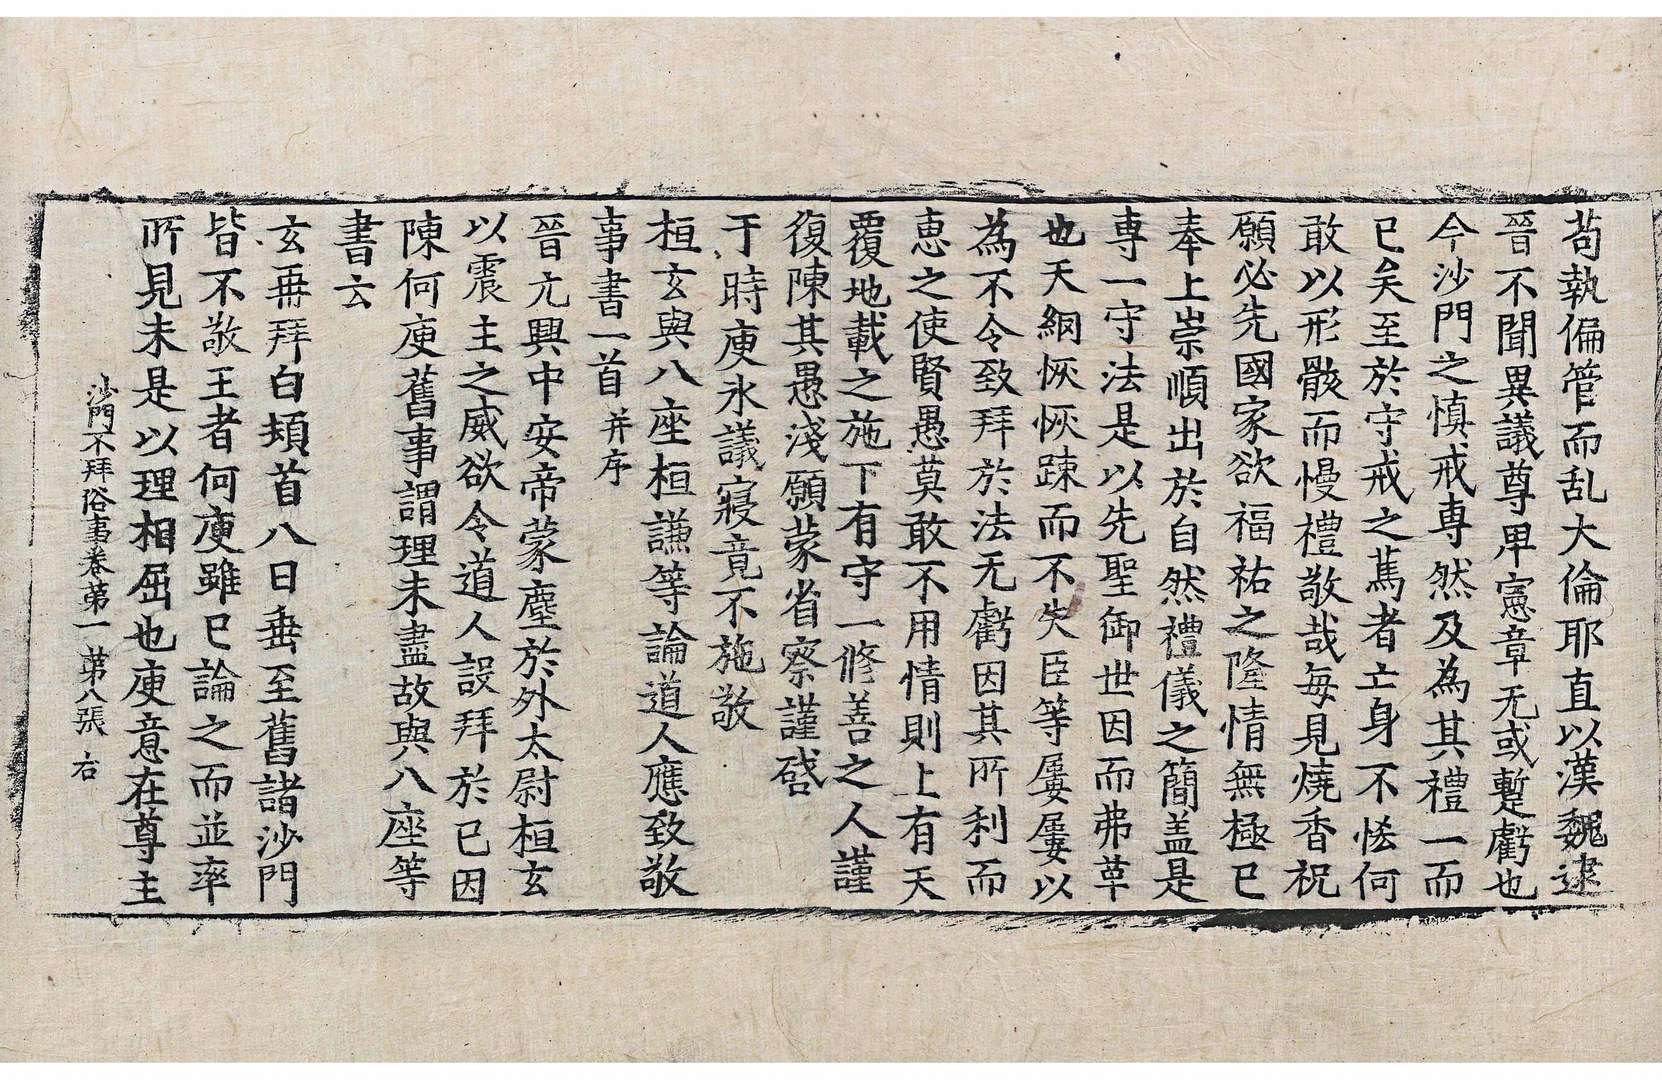 苟執偏管而乱大倫耶直以漢魏逮
晉不聞異議尊卑憲章无或蹔虧也
今沙門之慎戒専然及為其禮一而
已矣至於守戒之篤者亡身不恡何
敢以形骸而慢禮敬哉每見燒香祝
願必先國家欲福祐之隆情無極已
奉上崇順出於自然禮儀之簡盖是
専一守法是以先聖御世因而弗革
也天網恢恢踈而不失臣等屢屢以
為不令致拜於法无虧因其所利而
恵之使賢愚莫敢不用情則上有天
覆地載之施下有守一脩善之人謹
復陳其愚淺願蒙省察謹啓
于時庾氷議寢竟不施敬
桓玄與八座桓謙等論道人應致敬
事書一首并序
晉元興中安帝蒙塵於外太尉桓玄
以震主之威欲令道人設拜於已因
陳何庾舊事謂理未盡故與八座等
書云
玄再拜白頓首八日垂至舊諸沙門
皆不敬王者何庾雖已論之而並率
所見未是以理相屈也庾意在尊主
沙門不拜俗事卷第一 第八張 右